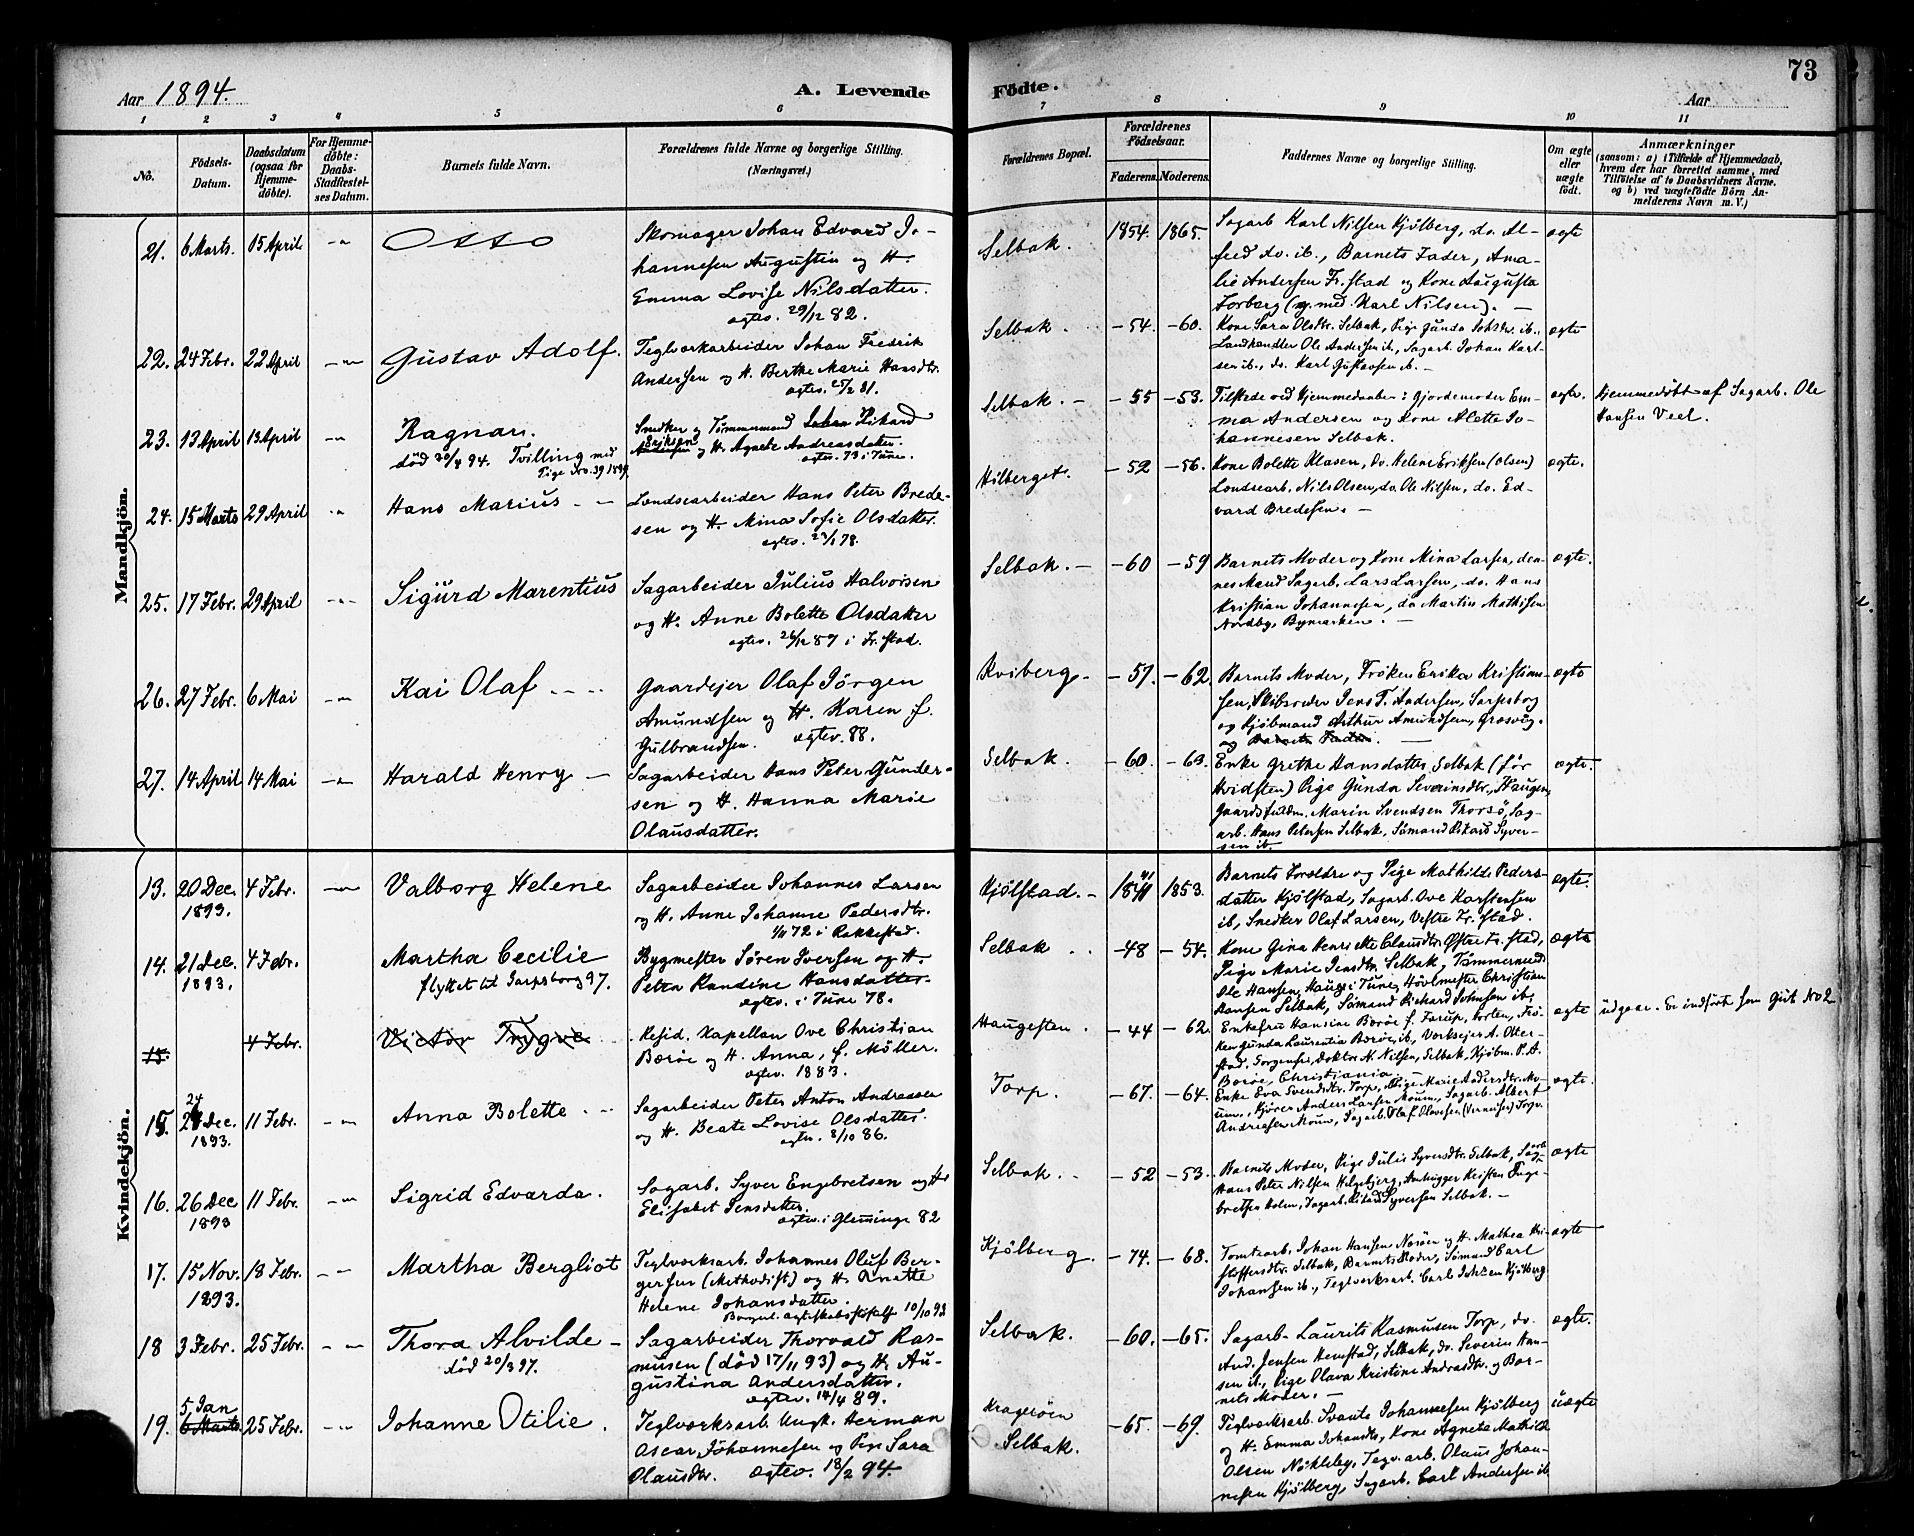 Aar 1894.
A. Levende
Födte.
73
Aar
1 2 3 4 5 6 7 8 9 10 11
No.
Födsels-Datum.
Daabsdatum (ogsaa for Hjemme-döbte).
For Hjemme-döbte: Daabs-Stadfæstel-ses Datum.
Barnets fulde Navn.
Forældrenes fulde Navne og borgerlige Stilling. (Næringsvei.)
Forældrenes Bopæl.
Forældrenes Födselsaar.
Faderens. Moderens.
Faddernes Navne og borgerlige Stilling.
Om ægte eller uægte födt.
Anmærkninger
(saasom: a) i Tilfælde af Hjemmedaab,
hvem der har forrettet samme, med
Tilföielse af to Daabsvidners Navne.
og b) ved uægtefödte Börn An-
melderens Navn m. V.)
Mandkjön.
21. 6 Marts. 15 April Otto
Skomager Johan Edvard Jo-
hannesen Augustin og H.
Emma Lovise Nilsdatter.
ægtev. 29/12 82.
Selbak. 1854. 1865.
Sagarb Karl Nilsen Kjölberg, do. Al-
fred do. ib., Barnets Fader, Ama-
lie Andersen Fr.stad og Kone Augusta
Torberg (g. med Karl Nilsen). —
ægte
22. 24 Febr. 22 April Gustav Adolf.
Teglverkarbeider Johan Fredrik
Andersen og H. Berthe Marie Hansdtr.
ægtev. 25/2 81.
Selbak. -54. -60.
Kone Sara Olsdtr. Selbak, Pige Gunda Johsdr. ib.,
Landhandler Ole Andersen ib., Sagarb. Johan Karl-
sen ib., do. Karl Gustavsen ib. —
ægte
23. 13 April 13 April Ragnar.
død 30/4 94. Tvilling med
Pige No. 39 1894
Snedker og Tömmermand Johan Rikard
Eriksen
Andersen og H. Agnete Andreasdatter.
ægtev. 73 i Tune.
Selbak. — -55 -53.
Tilstede ved Hjemmedaaben: Gjordemoder Em-
ma Andersen og Kone Alette Jo-
hannesen Selbak.
ægte.
Hjemmedöbt af Sagarb. Ole
Hansen Veel.
24. 15 Marts 29 April Hans Marius —
Londsearbeider Hans Peter Brede-
sen og H. Mina Sofie Olsdatter.
ægtev. 23/1 78.
Hilberget. -52 -56.
Kone Bolette Klasen, do. Helene Eriksen (Olsen)
Londsearb. Nils Olsen, do. Ole Nilsen, do. Ed-
vard Bredesen. —
ægte.
25. 17 Febr. 29 April Sigurd Marentius
Sagarbeider Julius Halvorsen
og H. Anne Bolette Olsdatter
ægtev. 26/12 87 i Fr.stad.
Selbak. — -60 -59
Barnets Moder og Kone Mina Larsen, den-
nes Mand Sagarb. Lars Larsen, do. Hans
Kristian Johannesen, do Martin Mathisen
Nordby, Bymarken. —
ægte.
26. 27 Febr. 6 Mai Kai Olaf
Gaardejer Olaf Jörgen
Amundsen og H. Karen f.
Gulbrandsen. ægtev. 88.
Kviberg. -57. -62.
Barnets Moder, Fröken Erika Kristian-
sen, Skibsreder Jens T. Andersen, Sarpsborg
og Kjöbmand Arthur Amundsen, Græsvig.
og Barnets Fader. —
ægte
27. 14 April 14 Mai Harald Henry —
Sagarbeider Hans Peter Gunder-
sen og H. Hanna Marie
Olausdatter.
Selbak. -60. -63.
Enke Grethe Hansdatter Selbak (för
Hvidsten) Pige Gunda Severinsdtr., Haugen,
Gaardsfuldm. Marin Svendsen Thorsö, Sag-
arb. Hans Petersen Selbak, Sömand Rikard Syver-
sen ib.
ægte.
Kvindekjön.
13. 20 Dec. 1893. 4 Febr. Valborg Helene
Sagarbeider Johannes Larsen
og H. Anne Johanne Pedersdtr.
1/11 72 i Rakkestad.
Kjölstad. — 1841 1853.
Barnets Forældre og Pige Mathilde Peders-
datter Kjölstad, Sagarb. Ove Karstensen
ib, Snedker Olaf Larsen, Vestre Fr.stad.
ægte.
14. 21 Dec. 1893. 4 Febr. Martha Cecilie
flyttet til Sarpsborg 97.
Bygmester Sören Iversen og H.
Petra Randine Hansdatter
ægtev. i Tune 78.
Selbak -48 -54.
Kone Gina Henriette Clausdtr. Østre Fr.stad,
Pige Marie Jensdtr. Selbak, Tömmermd.
Ole Hansen, Hauge i Tune, Hövlmester Christian
Hansen Selbak, Sömand Richard Johnsen ib.
ægte
15. 4 Febr. Victor Trygve
Resid. Kapellan Ove Christian
Børøe og H. Anna, f. Möller.
ægtev. 1883.
Haugesten. -44 -62.
Enkefru Hansine Børøe f. Farup, Horten, Frö-
ken Gunda Laurentia Børøe, ib., Værksejer A. Otter-
stad, Sorgenfri, Doktor N. Nilsen, Selbak, Kjöbm. P. A.
Börøe, Christiania
ægte
udgaar. Er indfört som Gut No 2
15. 24 Dec. 1893. 11 Febr. Anna Bolette.
Sagarbeider Peter Anton Andreassen
og H. Beate Lovise Olsdatter.
ægtev. 8/10 86.
Torp. -67. -64.
Enke Eva Svendsdtr. Torp, Pige Marie Andersdtr. Mo-
um, Kjörer Anders Larsen Moum, Sagarb. Albert
Andreasen Moum, Sagarb. Olaf Olavesen Torp.
ægte.
16. 26 Dec 1893 11 Febr. Sigrid Edvarda.
Sagarb. Syver Engebretsen og H.
Elisabet Jensdatter.
ægtev. i Glemminge 82
Selbak. -52 -53.
Barnets Moder, Pige Julie Syversdtr. Selbak, Sagarb
Hans Peter Nilsen Helgebjerg, Kristen Enge-
bretsen Holm, Sagarb. Rikard Syversen Selbak. —
ægte
17. 15 Nov. 1893. 18 Febr. Martha Bergliot
Teglverksarb. Johannes Oluf Ber-
gersen (Methodist) og H. Anette
Helene Johansdatter.
Borgerl. ægteskabsstiftelse 10/10 92
Kjölberg. -74. -68.
Tomtearb. Johan Hansen Næsöen og H. Mathea Kri-
stoffersdtr. Selbak, Barnets Moder, Sömand Carl
Johansen ib., Teglverksarb. Carl Johsen Kjölberg
ægte
18 3 Febr. 25 Febr. Thora Alvilde —
död 20/3 97.
Sagarbeider Thorvald Ras-
musen (död 17/11 93) og H. Au-
gustina Andersdatter.
ægtev. 14/4 89.
Selbak. -60. -65.
Sagarb. Laurits Rasmusen Torp, do.
And. Jensen Hemstad, Selbak, do. Severin Han-
sen ib., Pige Olava Kristine Andrasdtr. og Bar-
nets Moder. —
ægte.
19. 5 Jan 6 Marts 25 Febr. Johanne Otilie.
Teglverksarb. Ungk. Herman
Oscar Johannesen og Pige Sara
Olausdtr. ægtev. 18/2 94.
Kragerön
Selbak. -65. -69.
Teglverksarb. Svante Johannesen Kjölberg
og H. Emma Johansdtr, Kone Agnete Mathilde
Olsen Nökleby, Tegv.arb. Olaus Johan-
nesen Kjölberg, Sagarb. Carl Andersen ib.
uægte